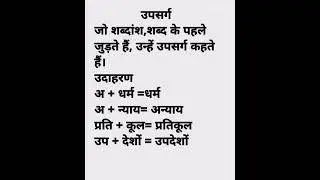 उपसर्ग
जो शब्दांश,शब्द के पहले
जुड़ते हैं, उन्हें उपसर्ग कहते
हैं।
उदाहरण
अ + धर्म =धर्म
अ + न्याय= अन्याय
प्रति + कूल= प्रतिकूल
उप + देशों = उपदेशों